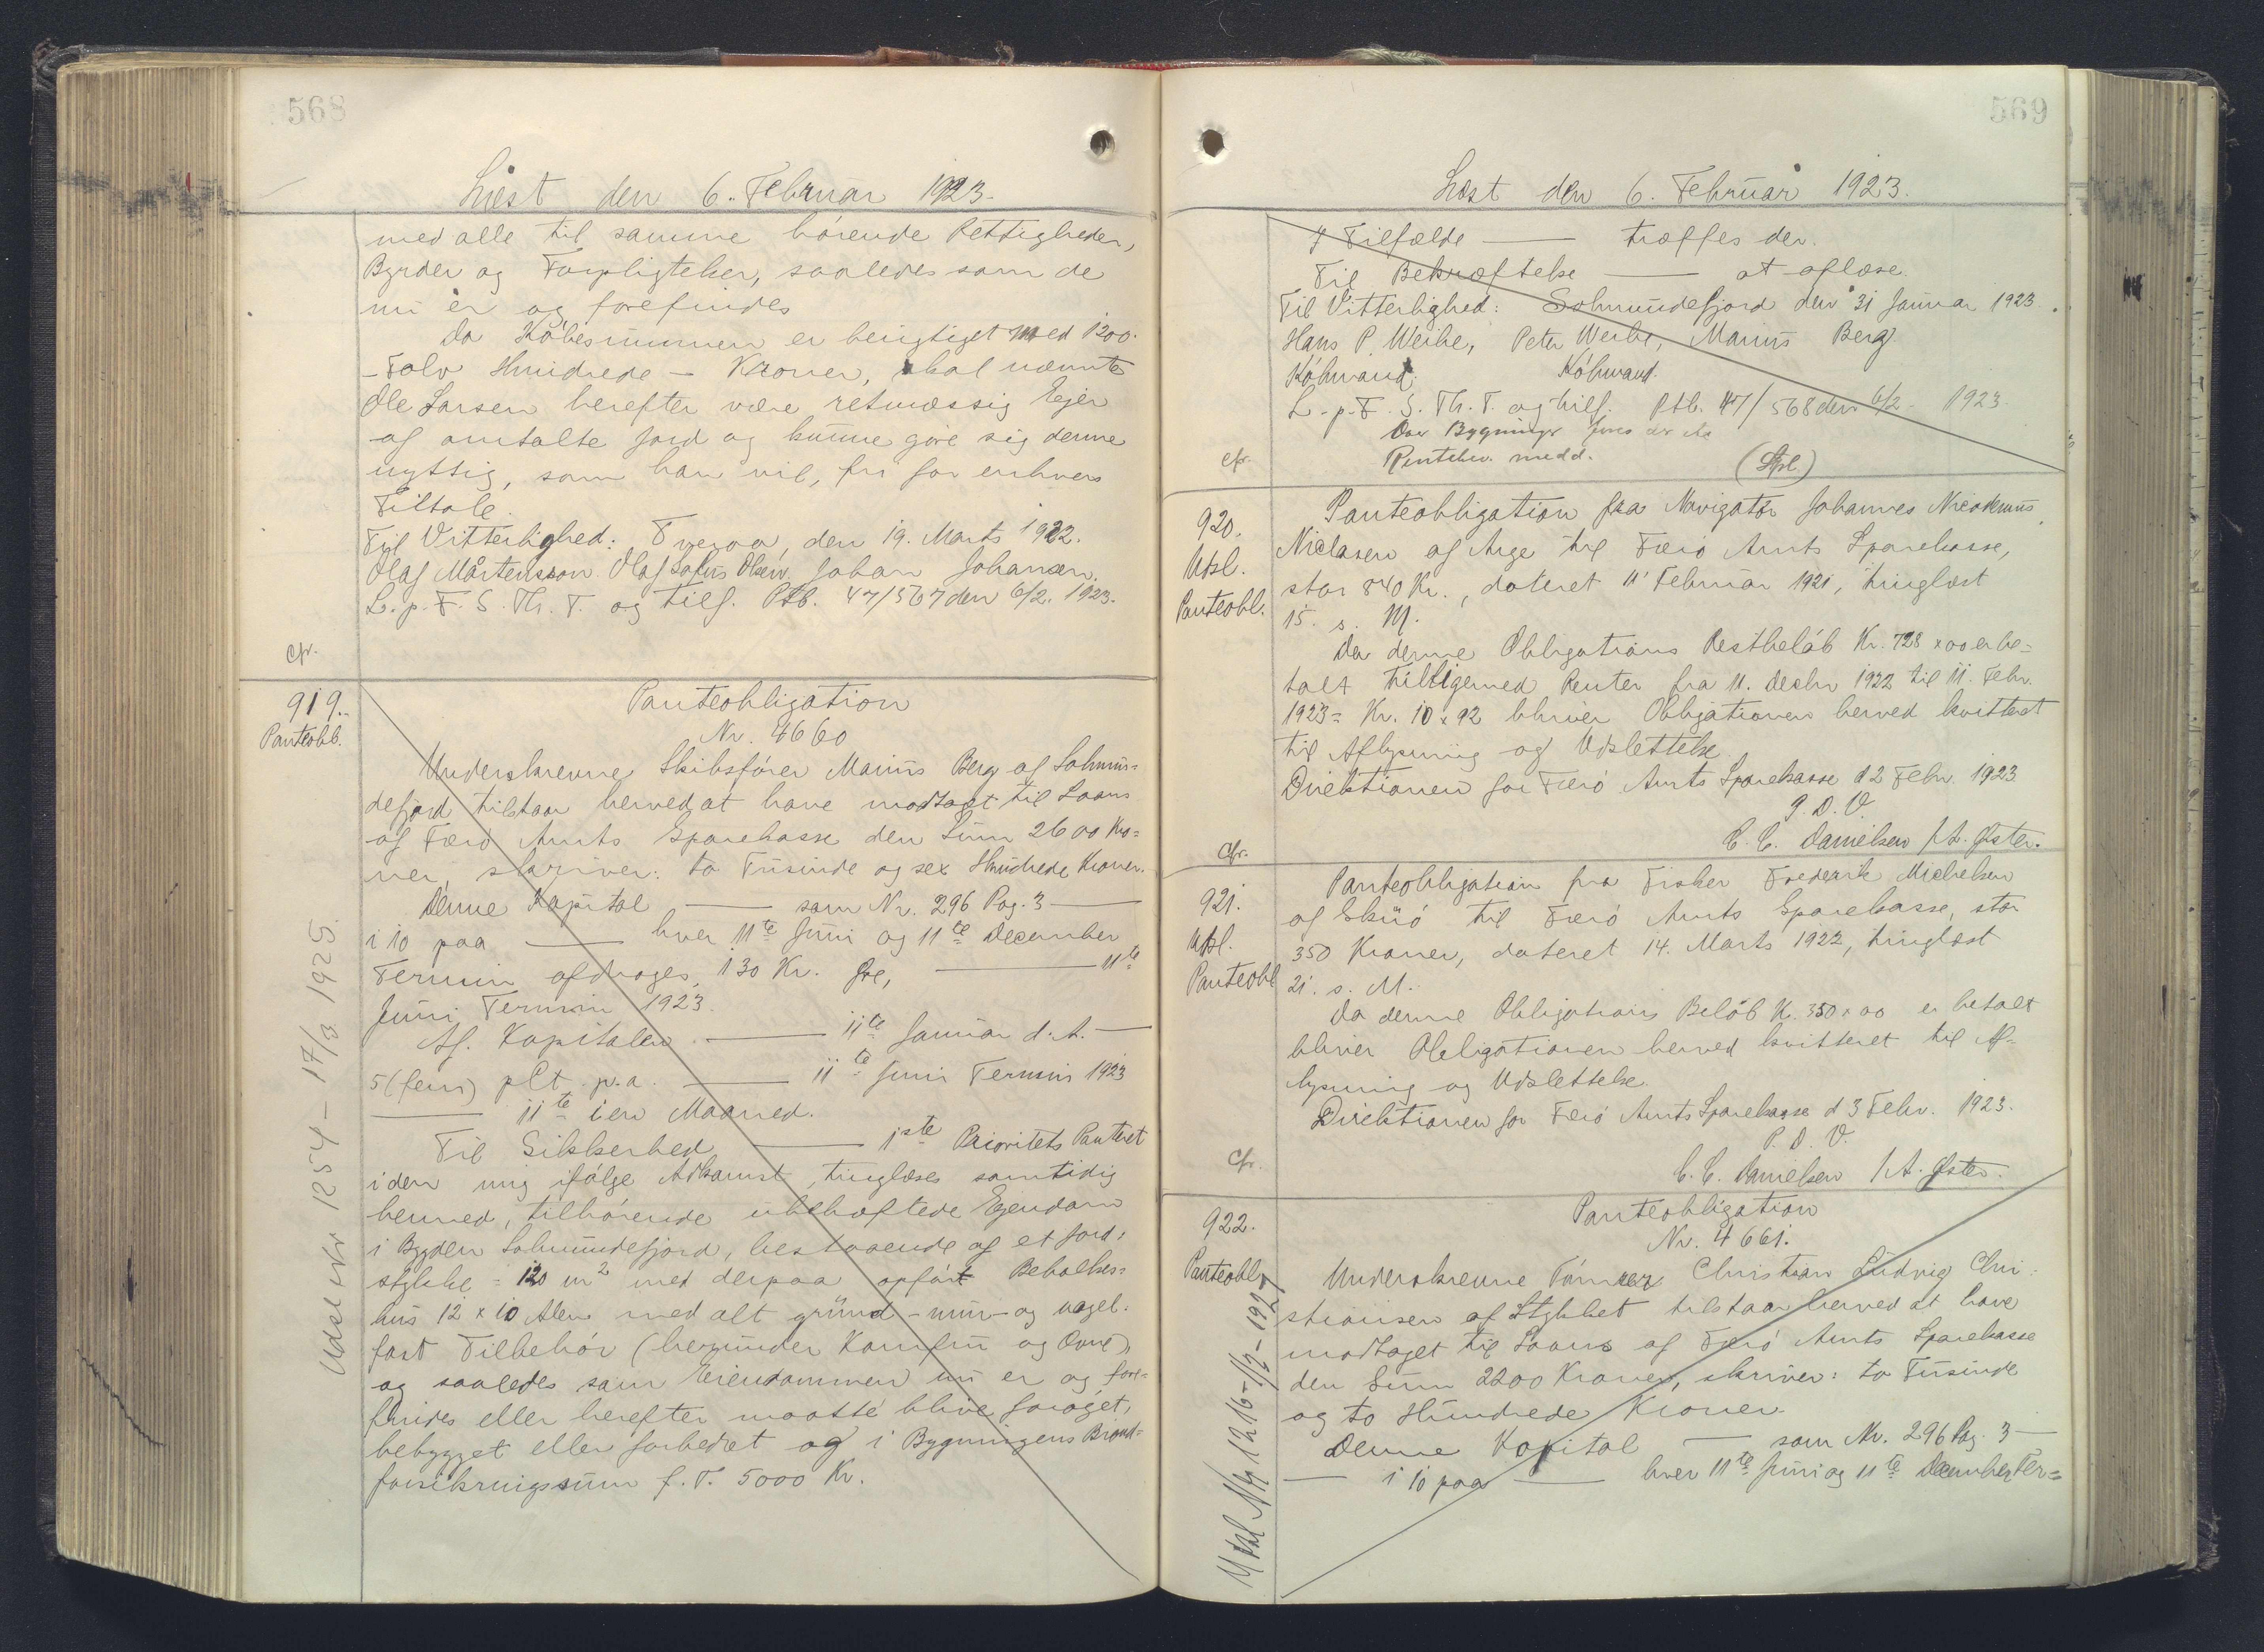 568
Læst den 6. Februar 1923.
med alle til samme hørende Rettigheder,
Byrder og Forpligtelser, saaledes som de
nu er og forefindes
Da Købesummen er berigtiget med 1200.
- Tolv Hundrede - Kroner, skal nævnte
Ole Larsen herefter være retmæssig Ejer
af omtalte Jord og kunne gøre sig denne
nyttig, som han vil, fri for enhver
Tiltale.
Til Vitterlighed: Tveraa, den 19. Marts 1922.
Olaf Mårtensson Olaf Sofus Olsen Johan Johansen.
L. p. F. S. Th. T. og tilf. Ptb. 47/567 den 6/2. 1923.
cfr.
919.
Panteobl.
Panteobligation
Nr. 4660
Underskrevne Skibsfører Marius Berg af Solmun=
defjord tilstaar herved at have modtaget til Laans
af Færø Amts Sparekasse den Sum 2600 Kro=
ner, skriver: to Tusinde og sex Hundrede Kroner.
Denne Kapital — som Nr. 296 Pag. 3 —
i 10 paa — hver 11te Juni og 11te December
Termin afdrages 130 Kr. Øre, — 11te
Juni Termin 1923.
Af Kapitalen — 11te Januar d. A. —
5 (fem) pCt. p.a. — 11te Juni Termin 1923
— 11te i en Maaned.
Til Sikkerhed — 1ste Prioritets Panteret
i den mig ifølge Adkomst, tinglæses samtidig
hermed, tilhørende ubehæftede Ejendom
i Bygden Solmundefjord, bestaaende af et Jord=
stykke = 120 m2 med derpaa opført Beboelses=
hus 12 x 10 Alen med alt grund - mur - og nagel-
fast Tilbehør (herunder Komfur og Ovne),
og saaledes som Eiendommen nu er og fore=
findes eller herefter maatte blive forøget,
bebygget eller forbedret og i Bygningens Brand=
forsikringssum f. T. 5000 Kr.
Udsl Nr 1254 - 17/3 1925.
569
Læst den 6. Februar 1923.
I Tilfælde — træffes der.
Til Bekræftelse — at aflæse.
Til Vitterlighed: Solmundefjord den 31 Januar 1923.
Hans P. Weihe, Peter Weihe, Marius Berg
Købmand. Købmand.
L. p. F. S. Th. T. og tilf. Ptb. 47/568 den 6/2 - 1923.
Bygninger
medd.
cfr.
920.
Udsl.
Panteobl.
Panteobligation fra Navigatør Johannes Nicodemus
Niclasen af Arge til Færø Amts Sparekasse,
stor 840 Kr., dateret 11' Februar 1921, tinglæst
15. s. M.
Da denne Obligations Restbeløb Kr. 728 x 00 er be=
talt tilligemed Renter fra 11. Decbr 1922 til 11. Febr.
1923 = Kr. 10 x 92 bliver Obligationen herved kvitteret
til Aflysning og Udslettelse
Direktionen for Færø Amts Sparekasse d 2 Febr. 1923
P. D. V.
C. C. Danielsen / A. Øster.
cfr.
921.
Udsl.
Panteobl
Panteobligation fra Fisker Frederik Michelsen
af Skuø til Færø Amts Sparekasse, stor
350 Kroner, dateret 14. Marts 1922, tinglæst
21. s. M.
Da denne Obligations Beløb Kr. 350 x 00 er betalt
bliver Obligationen herved kvitteret til Af-
lysning og Udslettelse.
Direktionen for Færø Amts Sparekasse d 3 Febr. 1923.
P. D. V.
C. C. Danielsen / A. Øster.
cfr.
922.
Panteobl.
Panteobligation
Nr. 4661.
Underskrevne Tømrer Christian Ludvig Chri=
stiansen af Stykket tilstaar herved at have
modtaget til Laans af Færø Amts Sparekasse
den Sum 2200 Kroner, skriver: to Tusinde
og to Hundrede Kroner
Denne Kapital — som Nr. 296 Pag. 3 —
— i 10 paa — hver 11te Juni og 11te December Ter=
Udsl Nr 1216 - 1/2 - 1927